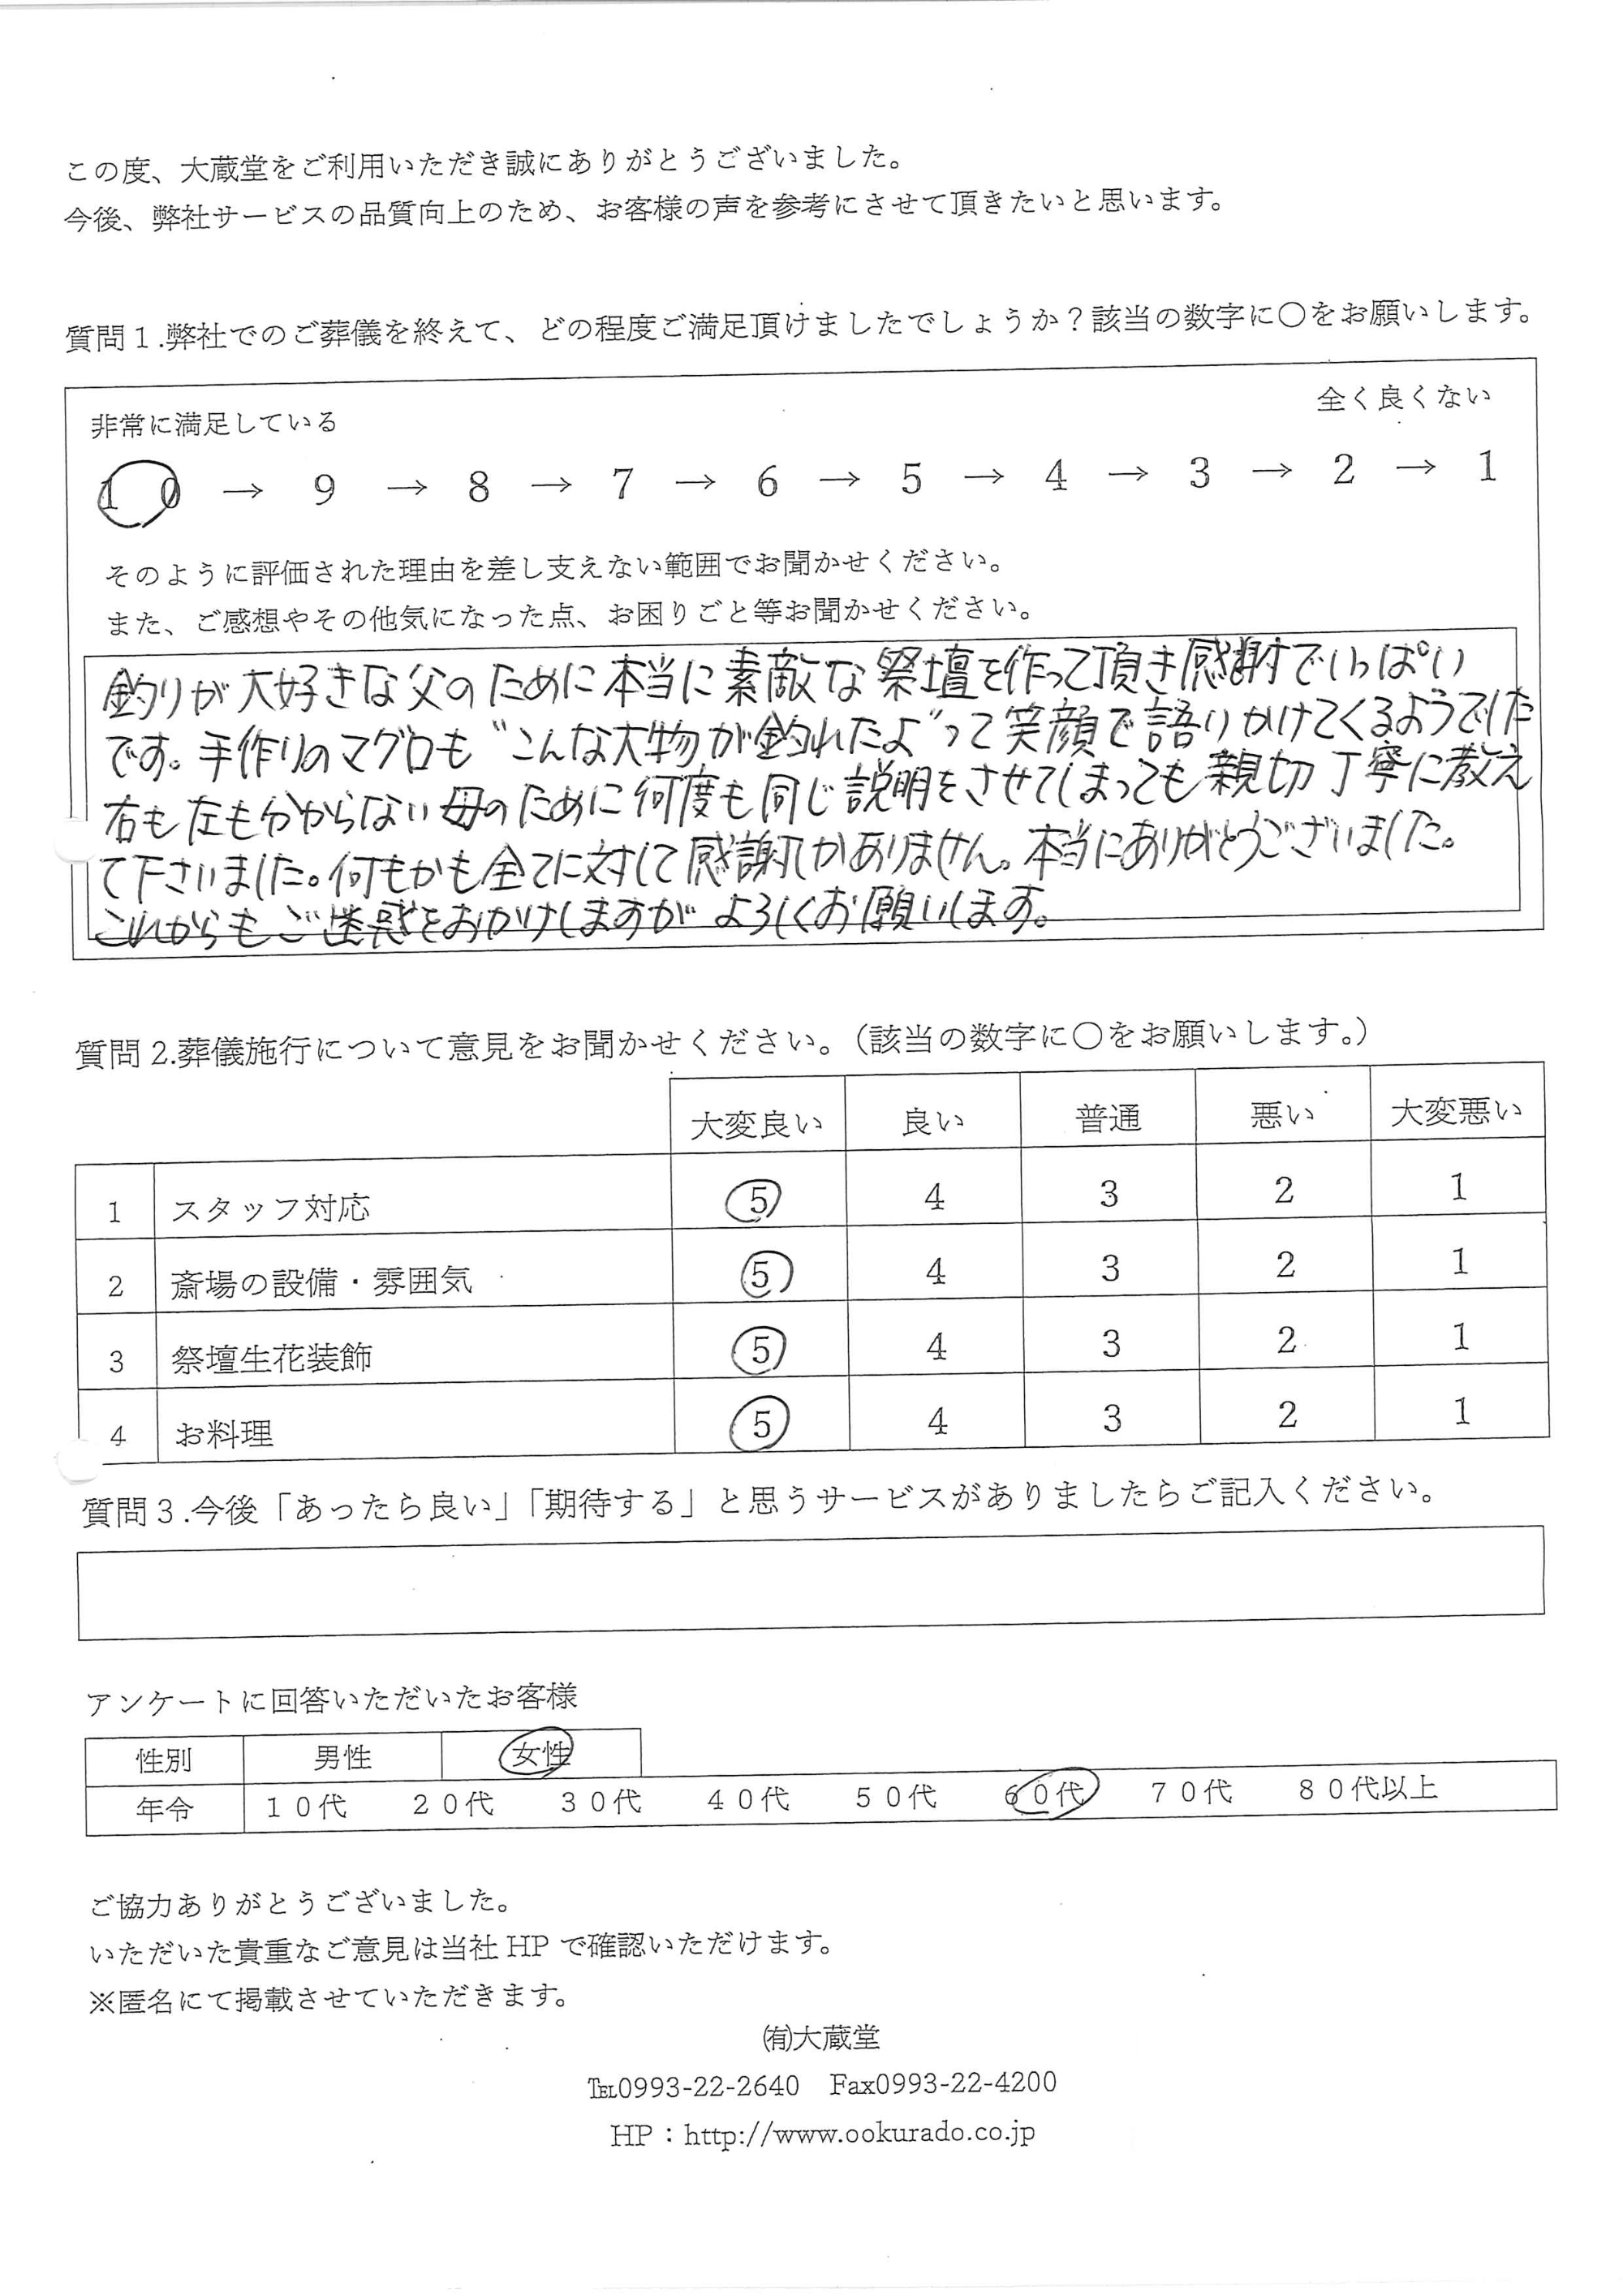 この度、大蔵堂をご利用いただき誠にありがとうございました。
今後、弊社サービスの品質向上のため、お客様の声を参考にさせて頂きたいと思います。
質問１.弊社でのご葬儀を終えて、どの程度ご満足頂けましたでしょうか？該当の数字に〇をお願いします。
非常に満足している 全く良くない
１０ → 9 → 8 → 7 → 6 → 5 → 4 → 3 → 2 → 1
そのように評価された理由を差し支えない範囲でお聞かせください。
また、ご感想やその他気になった点、お困りごと等お聞かせください。
釣りが大好きな父のために本当に素敵な祭壇を作って頂き感謝でいっぱい
です。手作りのマグロも〝こんな大物が釣れたよ〟って笑顔で語りかけてくるようでした
右も左も分からない母のために何度も同じ説明をさせてしまっても親切丁寧に教え
て下さいました。何もかも全てに対して感謝しかありません。本当にありがとうございました。
これからもご迷惑をおかけしますがよろしくお願いします。
質問 2.葬儀施行について意見をお聞かせください。（該当の数字に〇をお願いします。）
大変良い 良い 普通 悪い 大変悪い
1 スタッフ対応 5 4 3 2 1
2 斎場の設備・雰囲気 5 4 3 2 1
3 祭壇生花装飾 5 4 3 2 1
4 お料理 5 4 3 2 1
質問３.今後「あったら良い」「期待する」と思うサービスがありましたらご記入ください。
アンケートに回答いただいたお客様
性別 男性 女性
年令 １０代 ２０代 ３０代 ４０代 ５０代 ６０代 ７０代 ８０代以上
ご協力ありがとうございました。
いただいた貴重なご意見は当社 HP で確認いただけます。
※匿名にて掲載させていただきます。
㈲大蔵堂
℡0993-22-2640 Fax0993-22-4200
HP：http://www.ookurado.co.jp